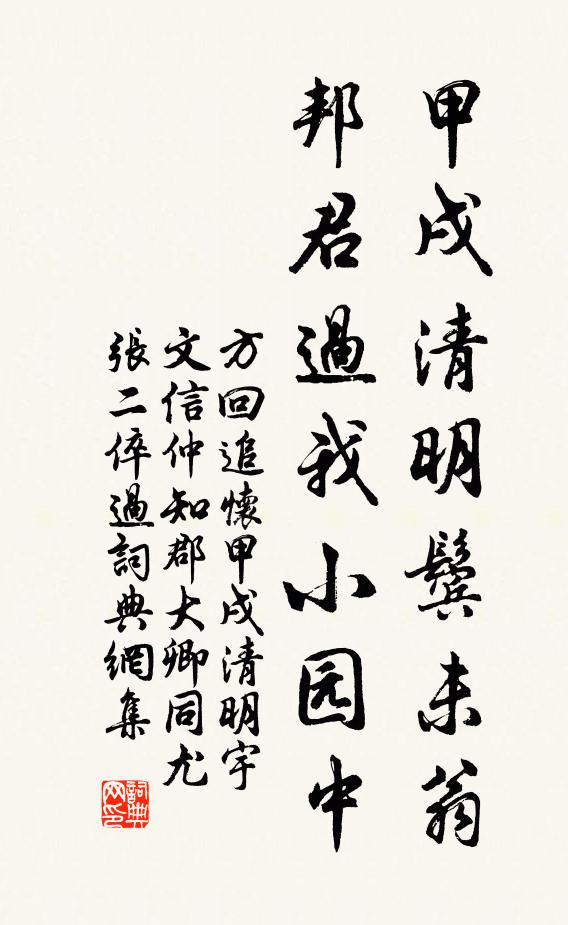 甲戌清明鬓未翁
邦君過我小园中
方回追懷甲戌清明宇
文信仲知郡大卿同尤
張二倅過詞典網集
詞典网印